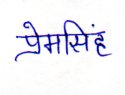 प्रेमसिंह